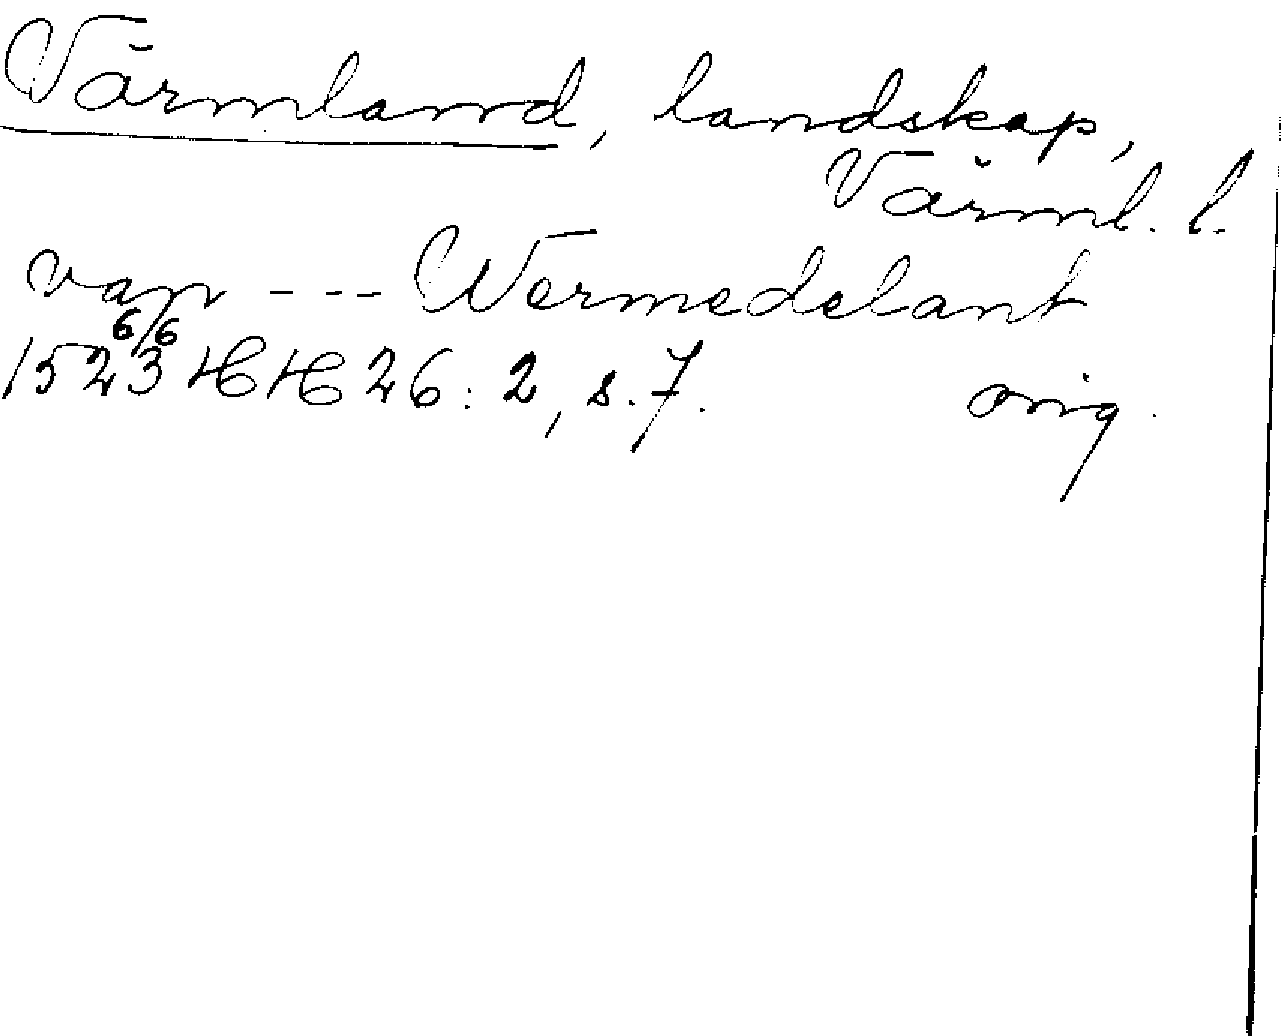 Värmland, landskap,
Värml. l.
van --- Wermedelant
6/6
1523 HH 26:2, s. 7. orig.